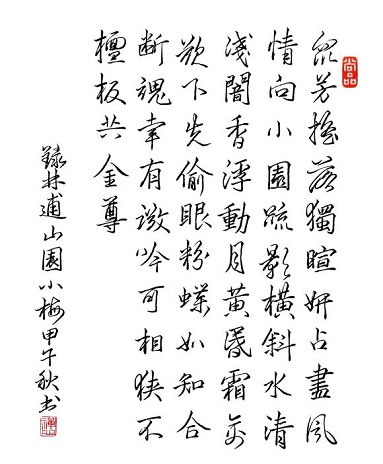 尚品
眾芳搖落獨暄妍占盡風
情向小園疏影橫斜水清
淺闇香浮動月黃昏霜禽
欲下先偷眼粉蝶如知合
斷魂幸有微吟可相狹不
檀板共金尊
錄林逋山園小梅甲午秋书